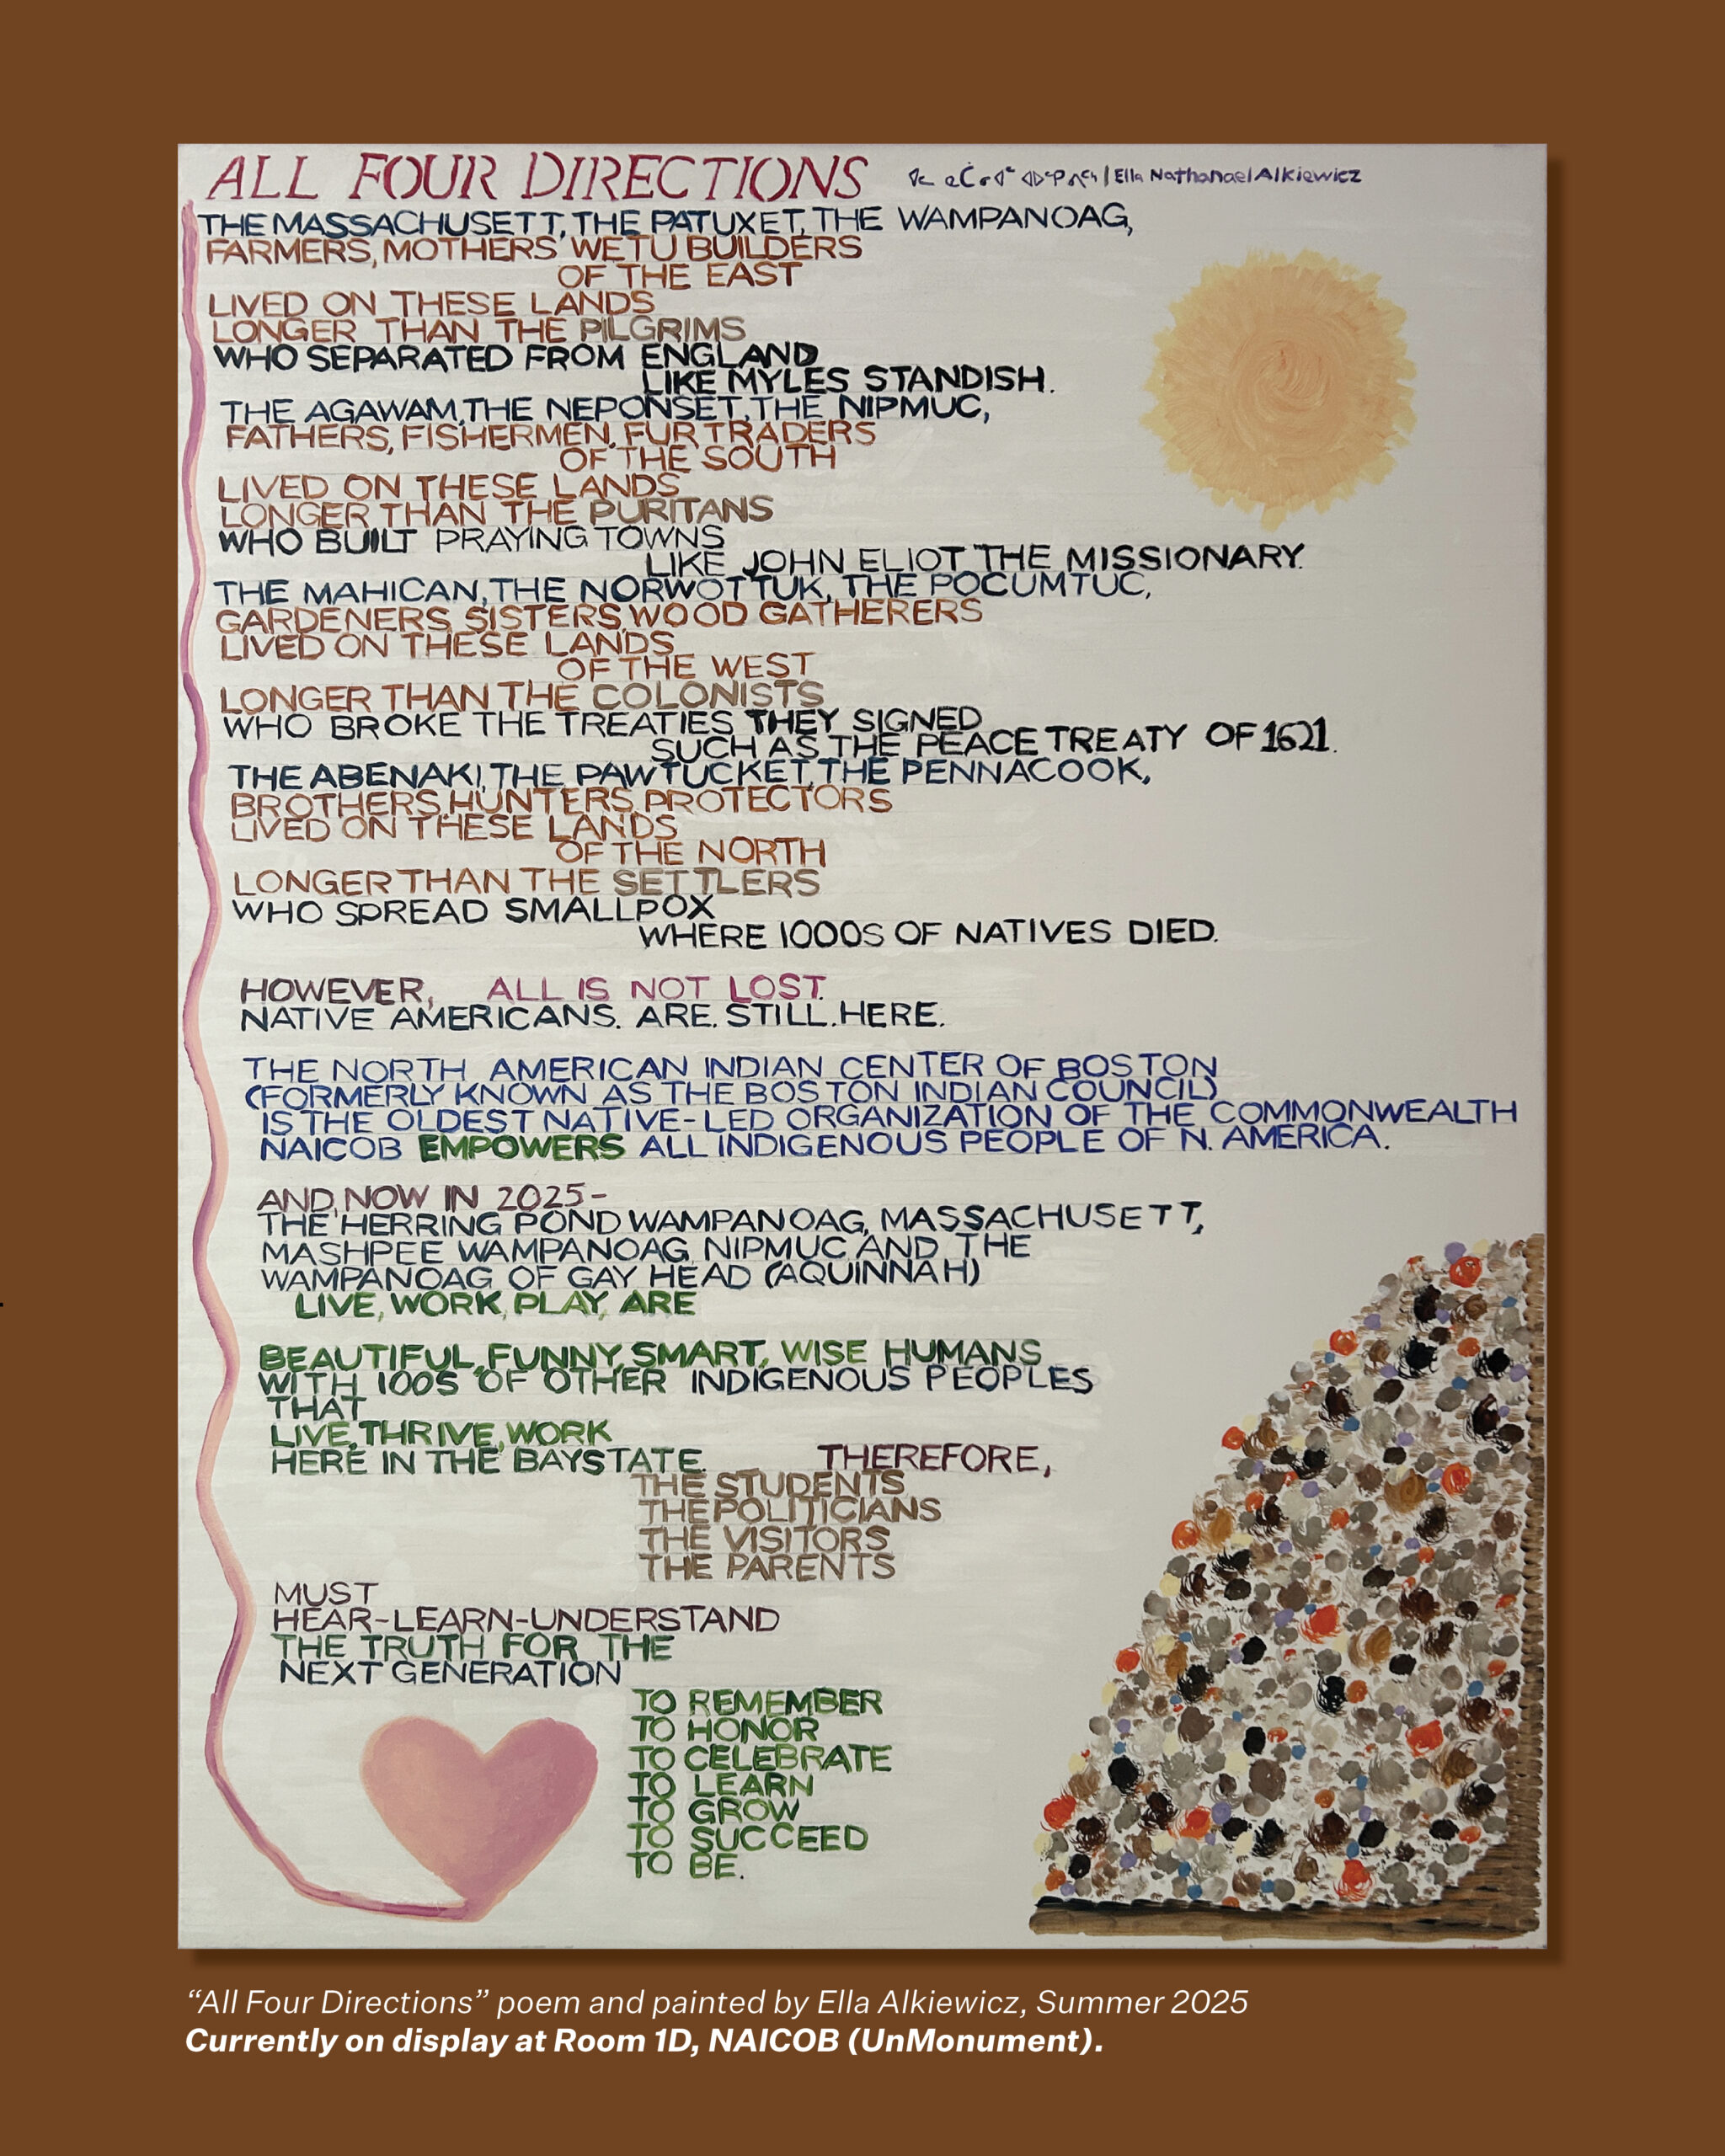 ALL FOUR DIRECTIONS
| Ella Nathanael Alkiewicz
THE MASSACHUSETT, THE PATUXET, THE WAMPANOAG,
FARMERS, MOTHERS WETU BUILDERS
OF THE EAST
LIVED ON THESE LANDS
LONGER THAN THE PILGRIMS
WHO SEPARATED FROM ENGLAND
LIKE MYLES STANDISH.
THE AGAWAM, THE NEPONSET, THE NIPMUC,
FATHERS, FISHERMEN, FUR TRADERS
OF THE SOUTH
LIVED ON THESE LANDS
LONGER THAN THE PURITANS
WHO BUILT PRAYING TOWNS
LIKE JOHN ELIOT THE MISSIONARY.
THE MAHICAN, THE NORWOTTUK, THE POCUMTUC,
GARDENERS, SISTERS, WOOD GATHERERS
LIVED ON THESE LANDS
OF THE WEST
LONGER THAN THE COLONISTS
WHO BROKE THE TREATIES THEY SIGNED
SUCH AS THE PEACE TREATY OF 1621.
THE ABENAKI, THE PAWTUCKET, THE PENNACOOK,
BROTHERS, HUNTERS, PROTECTORS
LIVED ON THESE LANDS
OF THE NORTH
LONGER THAN THE SETTLERS
WHO SPREAD SMALLPOX
WHERE 1000S OF NATIVES DIED.
HOWEVER, ALL IS NOT LOST.
NATIVE AMERICANS. ARE. STILL. HERE.
THE NORTH AMERICAN INDIAN CENTER OF BOSTON
(FORMERLY KNOWN AS THE BOSTON INDIAN COUNCIL)
IS THE OLDEST NATIVE-LED ORGANIZATION OF THE COMMONWEALTH
NAICOB EMPOWERS ALL INDIGENOUS PEOPLE OF N. AMERICA.
AND, NOW IN 2025-
THE HERRING POND WAMPANOAG, MASSACHUSETT,
MASHPEE WAMPANOAG, NIPMUC AND THE
WAMPANOAG OF GAY HEAD (AQUINNAH)
LIVE, WORK, PLAY, ARE
BEAUTIFUL, FUNNY, SMART, WISE HUMANS
WITH 100S OF OTHER INDIGENOUS PEOPLES
THAT
LIVE, THRIVE, WORK
HERE IN THE BAYSTATE. THEREFORE,
THE STUDENTS
THE POLITICIANS
THE VISITORS
THE PARENTS
MUST
HEAR-LEARN-UNDERSTAND
THE TRUTH FOR THE
NEXT GENERATION
TO REMEMBER
TO HONOR
TO CELEBRATE
TO LEARN
TO GROW
TO SUCCEED
TO BE.
“All Four Directions” poem and painted by Ella Alkiewicz, Summer 2025
Currently on display at Room 1D, NAICOB (UnMonument).